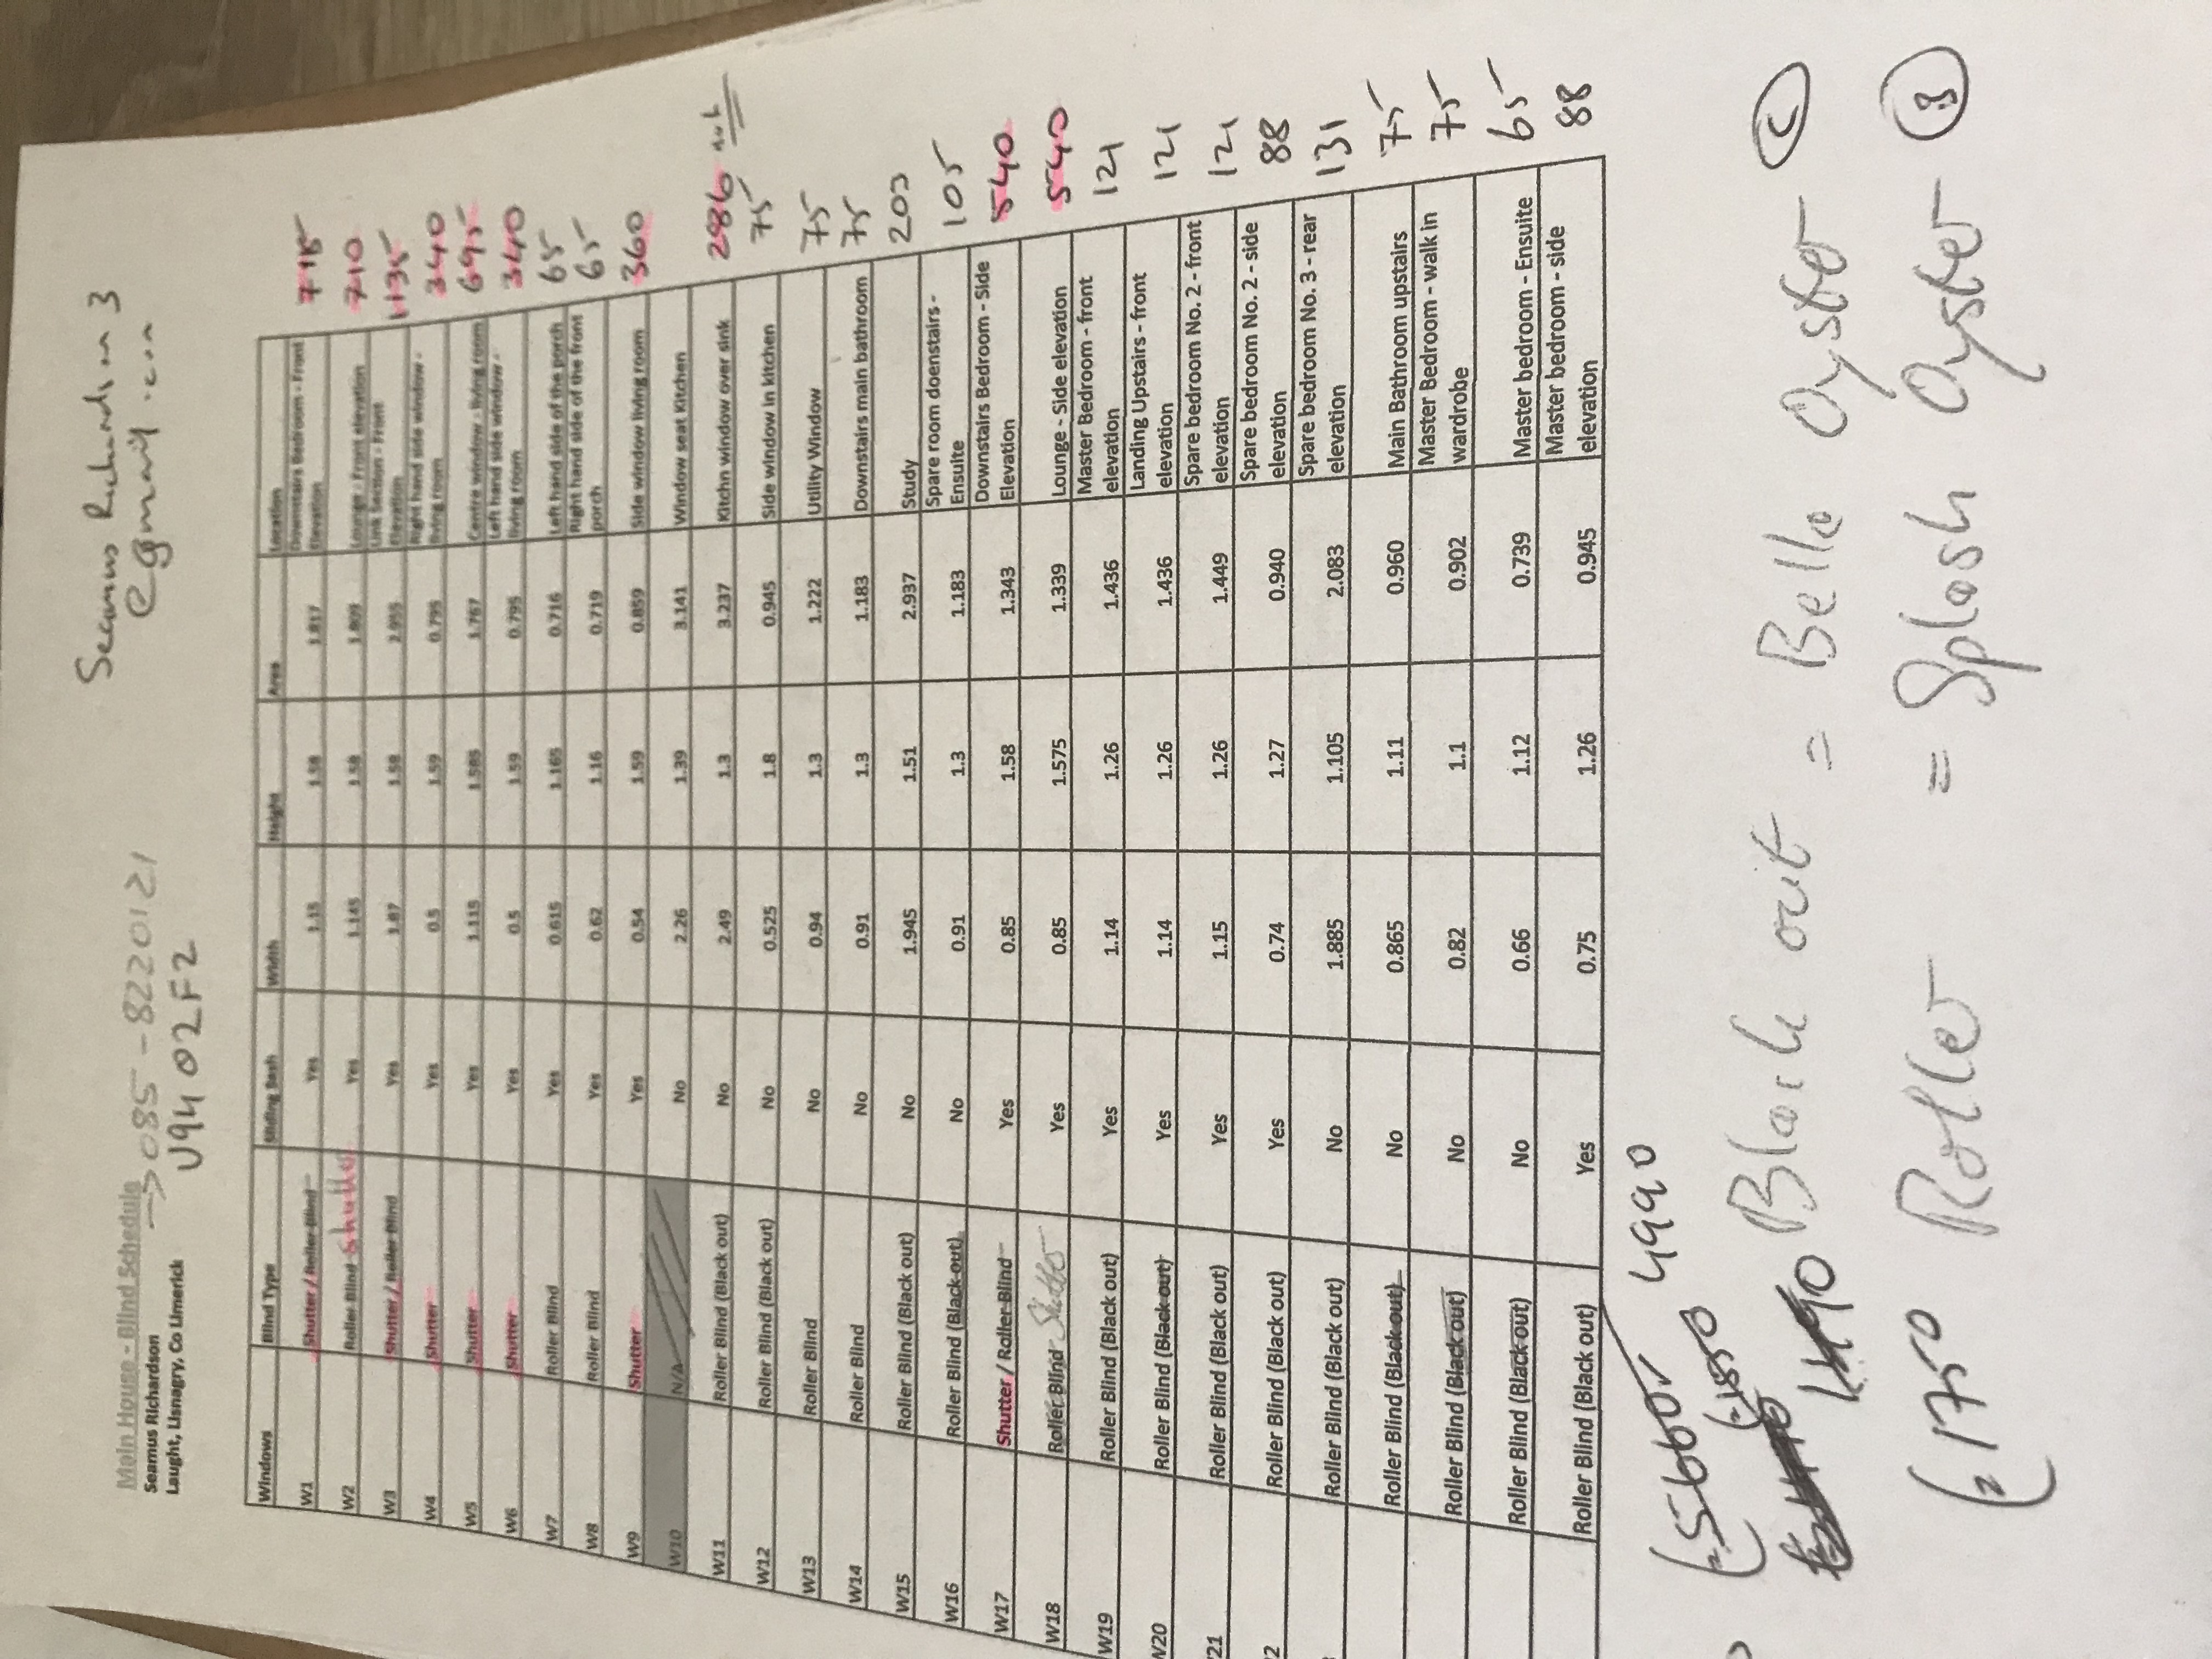 Seamus Richardson 3
@gmail.com
Main House - Blind Schedule
Seamus Richardson → 085-8220121
Laught, Lisnagry, Co Limerick V94 02F2
Windows Blind Type Sliding Sash Width Height Area Location
W1 Shutter / Roller Blind Yes 1.15 1.58 1.817 Downstairs Bedroom - Front Elevation 715
W2 Roller Blind Shutter Yes 1.145 1.58 1.809 Lounge - Front elevation 710
W3 Shutter / Roller Blind Yes 1.87 1.58 2.955 Link Section - Front Elevation 1135
W4 Shutter Yes 0.5 1.59 0.795 Right hand side window - living room 340
W5 Shutter Yes 1.115 1.585 1.767 Centre window - living room 695
W6 Shutter Yes 0.5 1.59 0.795 Left hand side window - living room 340
W7 Roller Blind Yes 0.615 1.165 0.716 Left hand side of the porch 65
W8 Roller Blind Yes 0.62 1.16 0.719 Right hand side of the front porch 65
W9 Shutter Yes 0.54 1.59 0.859 Side window living room 360
W10 N/A No 2.26 1.39 3.141 Window seat Kitchen
W11 Roller Blind (Black out) No 2.49 1.3 3.237 Kitchn window over sink 286
W12 Roller Blind (Black out) No 0.525 1.8 0.945 Side window in kitchen 75
W13 Roller Blind No 0.94 1.3 1.222 Utility Window 75
W14 Roller Blind No 0.91 1.3 1.183 Downstairs main bathroom 75
W15 Roller Blind (Black out) No 1.945 1.51 2.937 Study 203
W16 Roller Blind (Black out) No 0.91 1.3 1.183 Spare room doenstairs - Ensuite 105
W17 Shutter / Roller Blind Yes 0.85 1.58 1.343 Downstairs Bedroom - Side Elevation 540
W18 Roller Blind Shutter Yes 0.85 1.575 1.339 Lounge - Side elevation 540
W19 Roller Blind (Black out) Yes 1.14 1.26 1.436 Master Bedroom - front elevation 121
W20 Roller Blind (Black out) Yes 1.14 1.26 1.436 Landing Upstairs - front elevation 121
21 Roller Blind (Black out) Yes 1.15 1.26 1.449 Spare bedroom No. 2 - front elevation 121
2 Roller Blind (Black out) Yes 0.74 1.27 0.940 Spare bedroom No. 2 - side elevation 88
Roller Blind (Black out) No 1.885 1.105 2.083 Spare bedroom No. 3 - rear elevation 131
Roller Blind (Black out) No 0.865 1.11 0.960 Main Bathroom upstairs 75
Roller Blind (Black out) No 0.82 1.1 0.902 Master Bedroom - walk in wardrobe 75
Roller Blind (Black out) No 0.66 1.12 0.739 Master bedroom - Ensuite 65
Roller Blind (Black out) Yes 0.75 1.26 0.945 Master bedroom - side elevation 88
4990
Black out = Bella Oyster C
€1750 Roller = Splash Oyster B